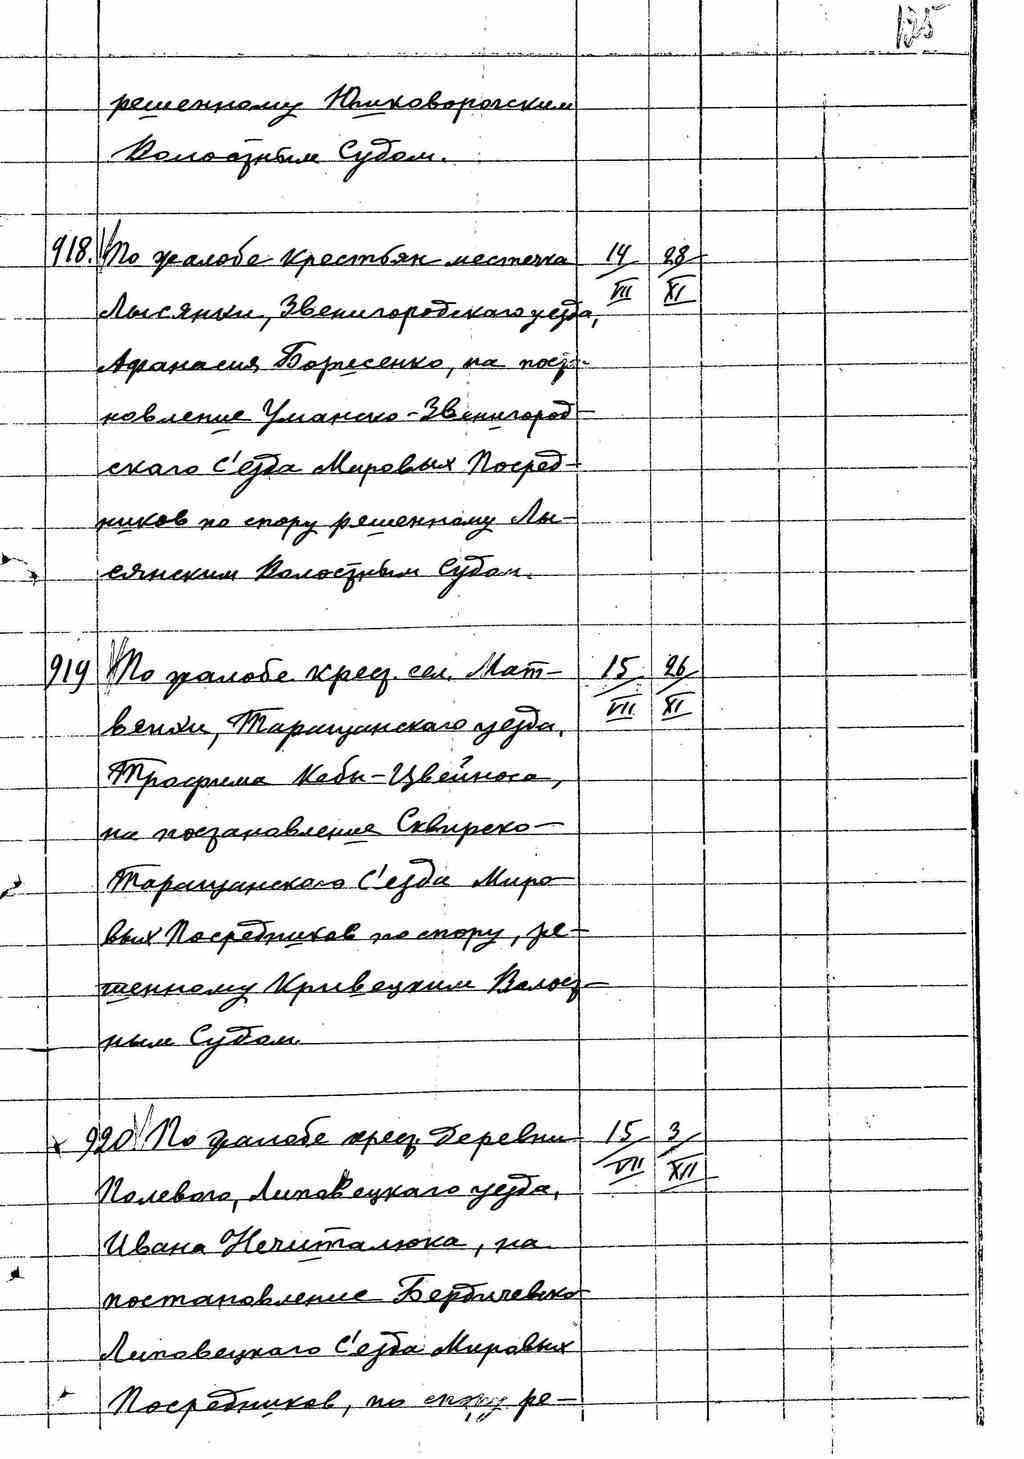 125
решенному Юшковорогским
Волостным Судом.
918. По жалобе крестьян местечка 14/VII 28/XI
Лысянки, Звенигородскаго уезда,
Афанасия Борисенко, на поста-
новление Уманско-Звенигород-
скаго С'езда Мировых Посред-
ников по спору решенному Лы-
сянским Волостным Судом.
919 По жалобе крест. сел. Мат- 15/VII 26/XI
вяихи, Таращанскаго уезда,
Трофима Кобы-Цвейноса,
на постановление Сквирско-
Таращанскаго С'езда Миро-
вых Посредников по спору, ре-
шенному Кривецким Волост-
ным Судом.
920 По жалобе крест. деревни 15/VII 3/XII
Полевого, Липовецкаго уезда,
Ивана Нечиталюка, на
постановление Бердичевско
Липовецкаго С'езда Мировых
Посредников, по спору ре-